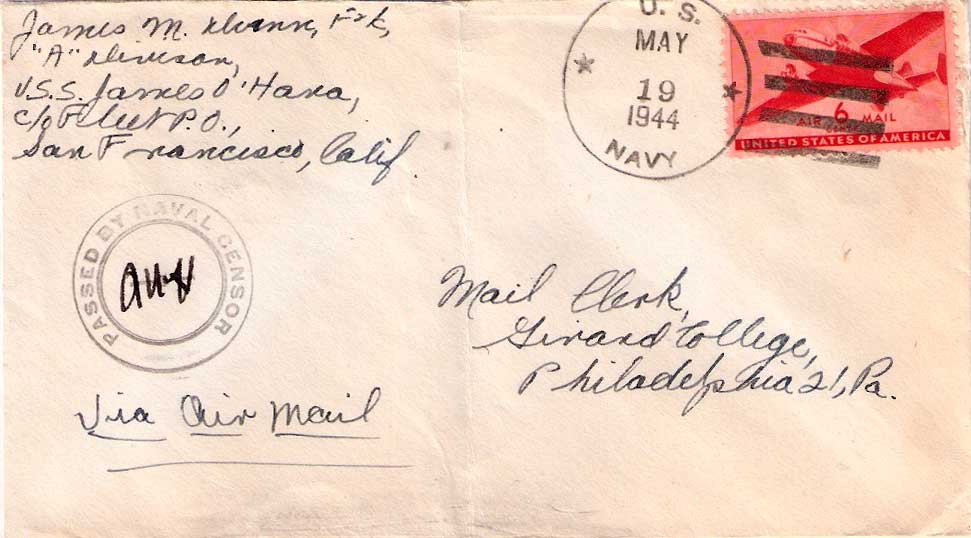 James M.
"A" Division,
U.S.S. James O'Hara,
c/o Fleet P.O.,
San Francisco, Calif.
U. S.
MAY
19
1944
NAVY
AIR 6 MAIL
CENTS
UNITED STATES OF AMERICA
PASSED BY NAVAL CENSOR
Mail Clerk,
Girard College,
Philadelphia 21, Pa.
Via Air Mail